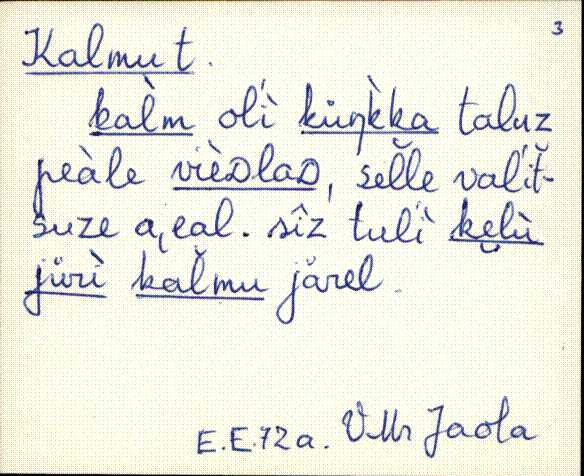 3
Kalmu t.
kal̀m oĺì kůŋk̀ka taluz
peàle vièᴅlaᴅ, sel̆le valit̆-
suze a̢eal. sîz tuĺi ke̮lù
jůrì kal̆mu jårel.
E.E.72a. VMr Jaola